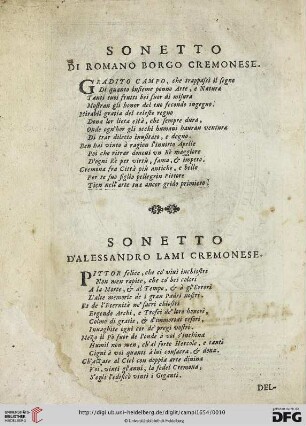 SONETTO
DI ROMANO BORGO CREMONESE.
GRADITO CAMPO, che trappassi il segno
Di quanto insieme ponno Arte, e Natura
Tanti tuoi frutti bei fuor di misura
Mostran gli honor del tuo fecondo ingegno:
Mirabil gratia del celeste regno
Dona lor lieta età, che sempre dura,
Onde ogn'hor gli occhi humani hauran ventura
Di trar diletto inusitato, e degno.
Ben hai vinto à ragion l'inuitto Apelle
Poi che ritrar doueui un Rè maggiore
D'ogni Rè per virtù, fama, & impero.
Cremona fra Città più antiche, e belle
Per te suo figlio pellegrin Pittore
Tien nell'arte sua ancor grido primiero.
SONETTO
D'ALESSANDRO LAMI CREMONESE.
PITTOR felice, che co' viui inchiostri
Non men rapite, che co' bei colori
A la Morte, & al Tempo, & à gl'Errori
L'alte memorie de i gran Padri nostri.
Et de l'Eternità ne' sacri chiostri
Ergendo Archi, e Trofei de' lari honori,
Colmo di gratie, & d'immortai tesori,
Inuaghite ogni cor de' pregi vostri.
Humil non men, ch'al forte Hercole, e tanti
Cigni à voi quanti à lui consacra, & dona.
Ch'alzate al Ciel con doppia arte diuina
Voi, vinti gl'anni, la fedel Cremona,
S'egli l'edificò vinti i Giganti.
DEL-
http://digi.ub.uni-heidelberg.de/diglit/campi1654/0010
© Universitätsbibliothek Heidelberg
UNIVERSITÄTS-
BIBLIOTHEK
HEIDELBERG